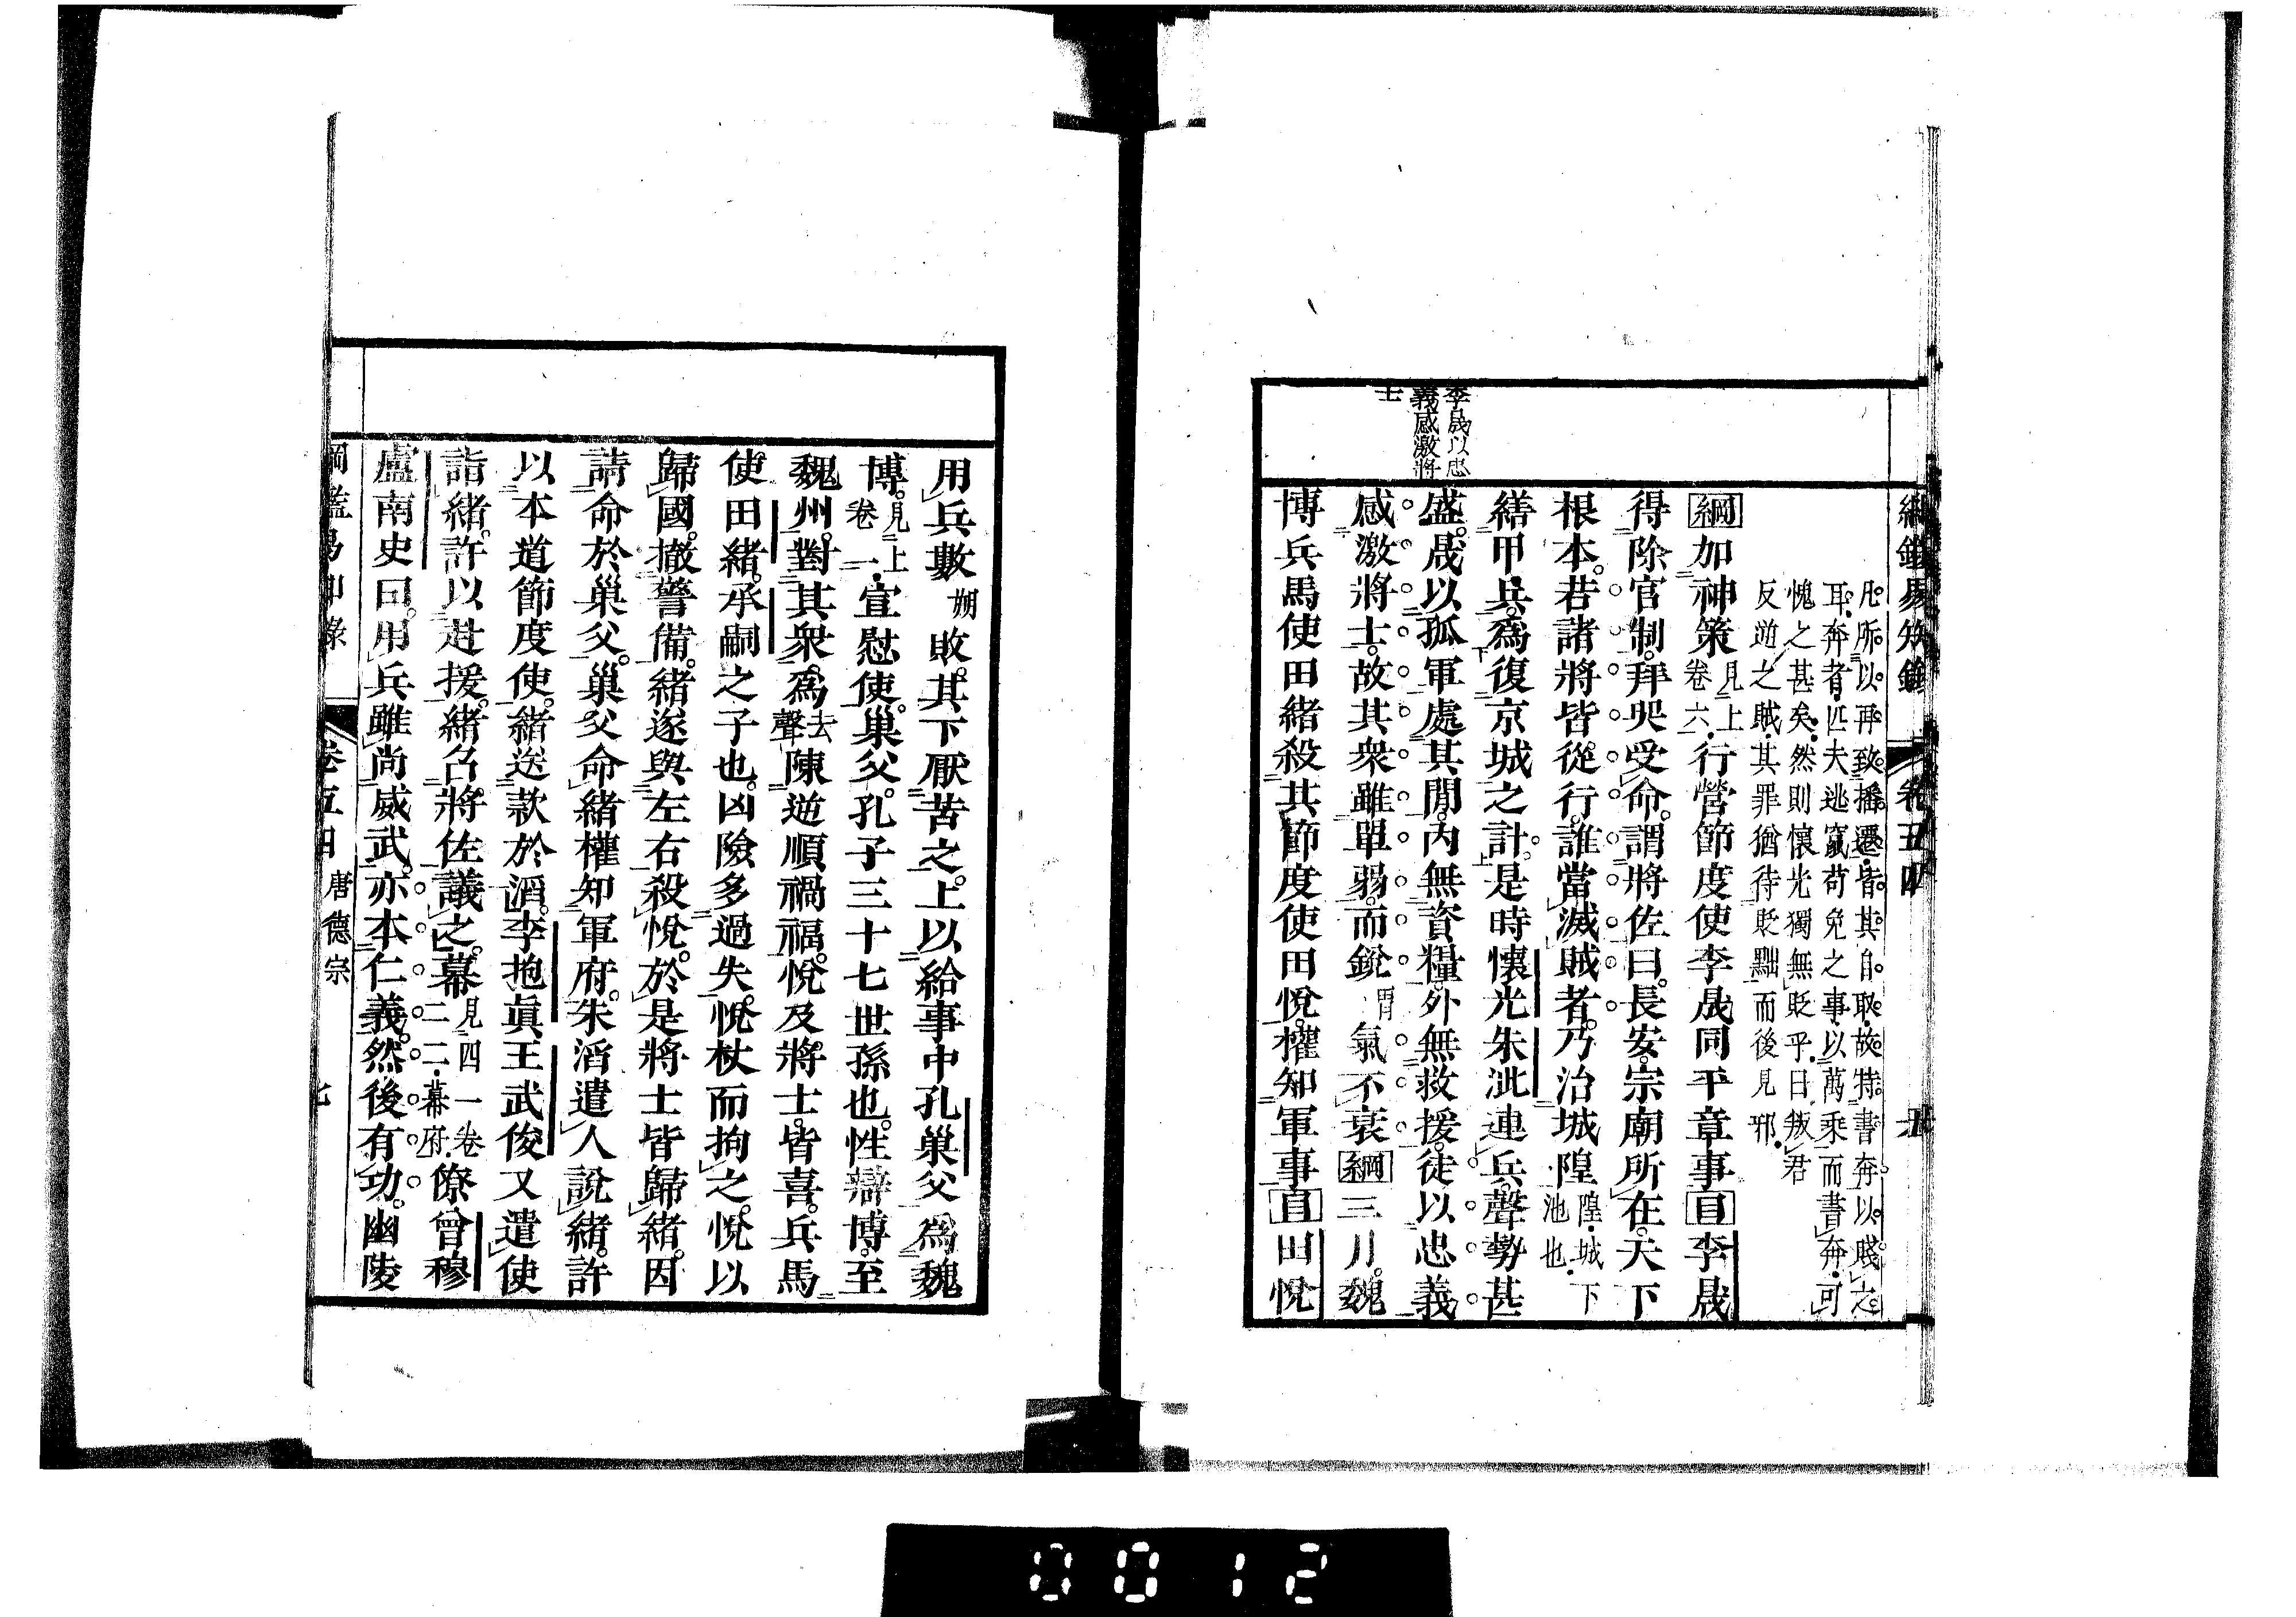 綱鑑易知錄 卷五四
凡所以再致播遷皆其自取故特書奔以賤之
耳奔者匹夫逃竄苟免之事以萬乘而書奔可
愧之甚矣然則懷光獨無貶乎曰叛君
反逆之賊其罪猶待貶黜而後見邪
綱加神策見上卷六行營節度使李晟同平章事目李晟
得除官制拜哭受命謂將佐曰長安宗廟所在天下
根本若諸將皆從行誰當滅賊者乃治城隍隍城下池也
繕甲兵爲復京城之計是時懷光朱泚連兵聲勢甚
盛晟以孤軍處其閒內無資糧外無救援徒以忠義
感激將士故其衆雖單弱而銳氣不衰綱三月魏
博兵馬使田緒殺其節度使田悅權知軍事目田悅
李晟以忠
義感激將
士
用兵數朔敗其下厭苦之上以給事中孔巢父爲魏
博見上卷一宣慰使巢父孔子三十七世孫也性辯博至
魏州對其衆爲去聲陳逆順禍福悅及將士皆喜兵馬
使田緒承嗣之子也凶險多過失悅杖而拘之悅以
歸國撤警備緒遂與左右殺悅於是將士皆歸緒因
請命於巢父巢父命緒權知軍府朱滔遣人說緒許
以本道節度使緒送款於滔李抱眞王武俊又遣使
詣緒許以赴援緒召將佐議之幕見四一卷二二幕府僚曾穆
盧南史曰用兵雖尚威武亦本仁義然後有功幽陵
綱鑑易知錄 卷五四 唐德宗 七
0012